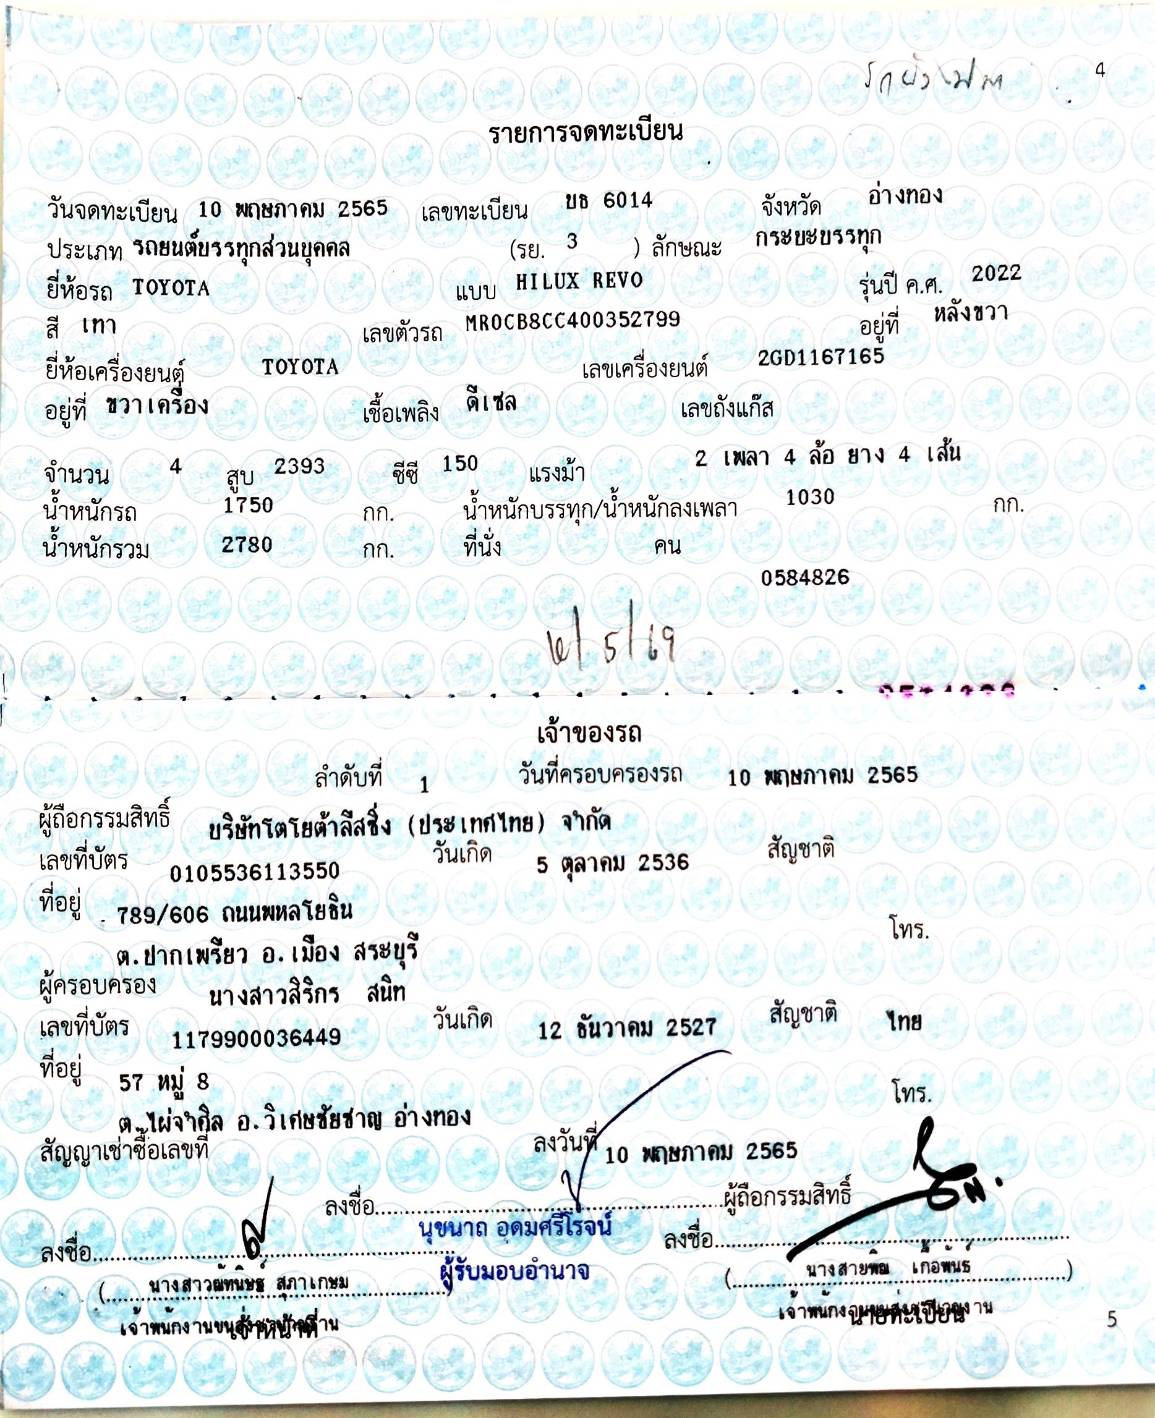 4
รายการจดทะเบียน
วันจดทะเบียน 10 พฤษภาคม 2565 เลขทะเบียน บธ 6014 จังหวัด อ่างทอง
ประเภท รถยนต์บรรทุกส่วนบุคคล (รย. 3 ) ลักษณะ กระบะบรรทุก
ยี่ห้อรถ TOYOTA แบบ HILUX REVO รุ่นปี ค.ศ. 2022
สี เทา เลขตัวรถ MR0CB8CC400352799 อยู่ที่ หลังขวา
ยี่ห้อเครื่องยนต์ TOYOTA เลขเครื่องยนต์ 2GD1167165
อยู่ที่ ขวาเครื่อง เชื้อเพลิง ดีเซล เลขถังแก๊ส
จำนวน 4 สูบ 2393 ซีซี 150 แรงม้า 2 เพลา 4 ล้อ ยาง 4 เส้น
น้ำหนักรถ 1750 กก. น้ำหนักบรรทุก/น้ำหนักลงเพลา 1030 กก.
น้ำหนักรวม 2780 กก. ที่นั่ง คน
0584826
เจ้าของรถ
ลำดับที่ 1 วันที่ครอบครองรถ 10 พฤษภาคม 2565
ผู้ถือกรรมสิทธิ์ บริษัทโตโยต้าลีสซิ่ง (ประเทศไทย) จำกัด
เลขที่บัตร 0105536113550 วันเกิด 5 ตุลาคม 2536 สัญชาติ
ที่อยู่ 789/606 ถนนพหลโยธิน
ต.ปากเพรียว อ.เมือง สระบุรี โทร.
ผู้ครอบครอง นางสาวสิริกร สนิท
เลขที่บัตร 1179900036449 วันเกิด 12 ธันวาคม 2527 สัญชาติ ไทย
ที่อยู่ 57 หมู่ 8
ต.ไผ่จำศิล อ.วิเศษชัยชาญ อ่างทอง โทร.
สัญญาเช่าซื้อเลขที่ ลงวันที่ 10 พฤษภาคม 2565
ลงชื่อ ผู้ถือกรรมสิทธิ์
นุขนาถ อุดมศรีโรจน์
ผู้รับมอบอำนาจ
ลงชื่อ ลงชื่อ
(นางสาว สุภาเกษม) (นางสายพิณ เกื้อพันธ์)
เจ้าหน้าที่ นายทะเบียน
5